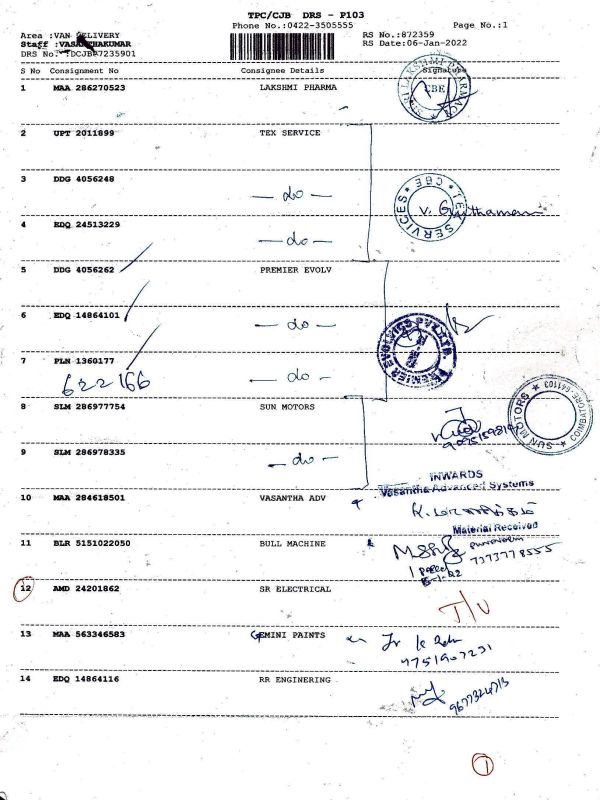 TPC/CJB DRS - P103
Phone No.:0422-3505555 Page No.:1
Area :VAN DELIVERY RS No.:872359
Staff :VASANTHAKUMAR RS Date:06-Jan-2022
DRS No. :DCJBP7235901
S No Consignment No Consignee Details Signature
1 MAA 286270523 LAKSHMI PHARMA
CBE
2 UPT 2011899 TEX SERVICE
3 DDG 4056248 — do —
TEX SERVICES * CBE *
4 EDQ 24513229 — do —
5 DDG 4056262 PREMIER EVOLV
6 EDQ 14864101 — do —
7 PLN 1360177 — do —
622166
8 SLM 286977754 SUN MOTORS
SUN MOTORS * COIMBATORE 641103 *
9 SLM 286978335 — do —
INWARDS
Vasantha Advanced Systems
10 MAA 284618501 VASANTHA ADV
Material Received
11 BLR 5151022050 BULL MACHINE
7373778555
12 AMD 24201862 SR ELECTRICAL
13 MAA 563346583 GEMINI PAINTS
9751907231
14 EDQ 14864116 RR ENGINERING
1